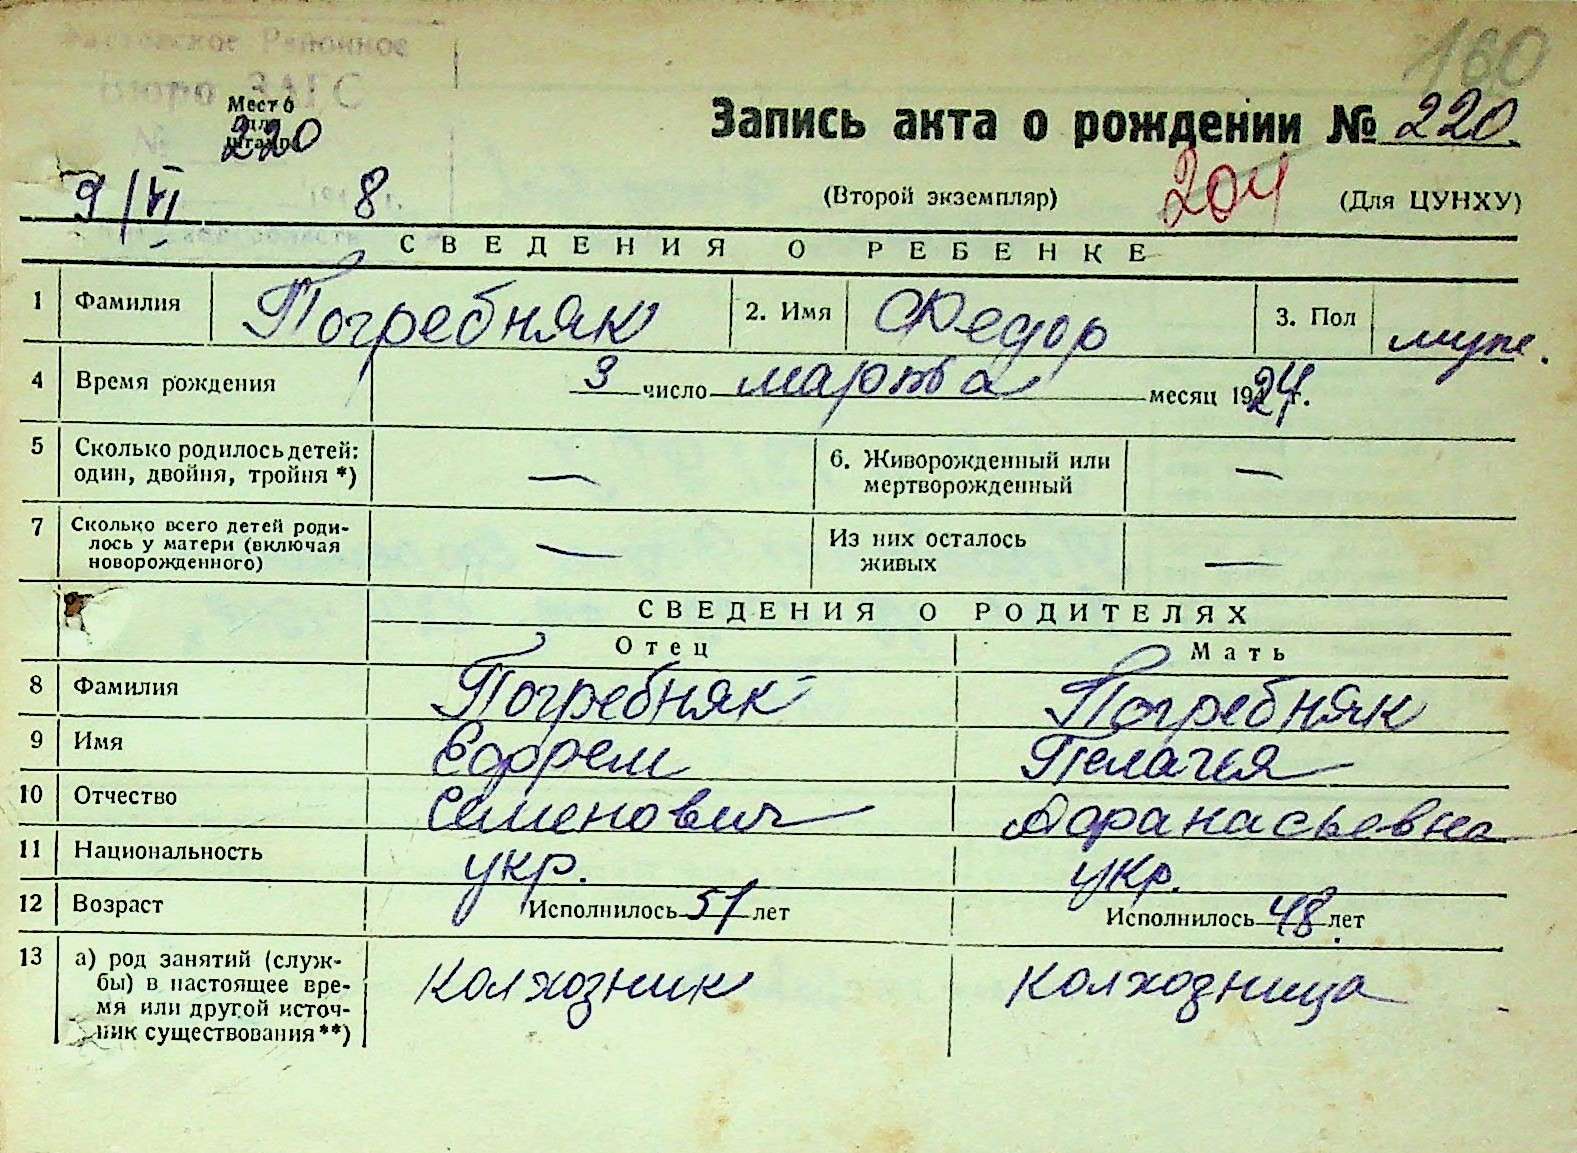 160
Районное
Бюро ЗАГС
Место
для
штампа
№ 220
9/VI 8
Запись акта о рождении № 220.
(Второй экземпляр) 204 (Для ЦУНХУ)
СВЕДЕНИЯ О РЕБЕНКЕ
1 Фамилия Погребняк 2. Имя Федор 3. Пол муж.
4 Время рождения 3 число марта месяц 1924 г.
5 Сколько родилось детей: — 6. Живорожденный или —
один, двойня, тройня *) мертворожденный
7 Сколько всего детей роди- — Из них осталось —
лось у матери (включая живых
новорожденного)
СВЕДЕНИЯ О РОДИТЕЛЯХ
Отец Мать
8 Фамилия Погребняк Погребняк
9 Имя Ефрем Пелагея
10 Отчество Семенович Афанасьевна
11 Национальность укр. укр.
12 Возраст Исполнилось 51 лет Исполнилось 48 лет
13 а) род занятий (служ- колхозник колхозница
бы) в настоящее вре-
мя или другой источ-
ник существования **)